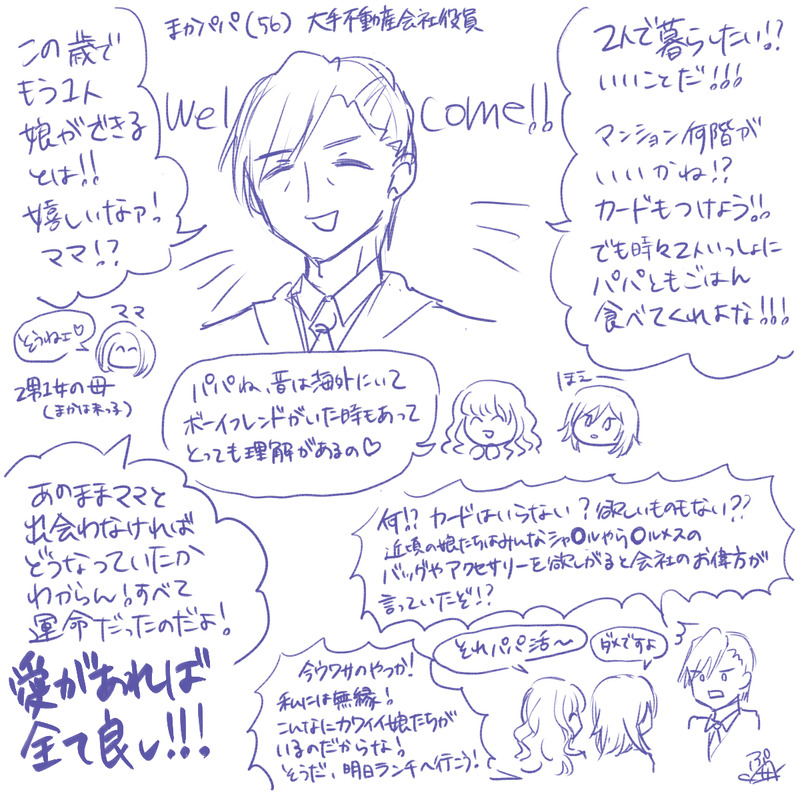 まかパパ(56) 大手不動産会社役員
Wel come!!
この歳で
もう1人
娘ができる
とは!!
嬉しいなァ!
ママ!?
2人で暮らしたい!?
いいことだ!!!
マンション何階が
いいかね!?
カードもつけよう!!
でも時々2人いっしょに
パパともごはん
食べてくれよな!!!
ママ
そうねェ♡
2男1女の母
(まかは末っ子)
パパね、昔は海外にいて
ボーイフレンドがいた時もあって
とっても理解があるの♡
ほえー
あのままママと
出会わなければ
どうなっていたか
わからん!すべて
運命だったのだよ!
愛があれば
全て良し!!!
何!? カードはいらない?欲しいものもない??
近頃の娘たちはみんなシャ○ルやら○ルメスの
バッグやアクセサリーを欲しがると会社のお偉方が
言っていたぞ!?
それパパ活〜
ダメですよ
今ウワサのやつか!
私には無縁!
こんなにカワイイ娘たちが
いるのだからな!
そうだ、明日ランチへ行こう!